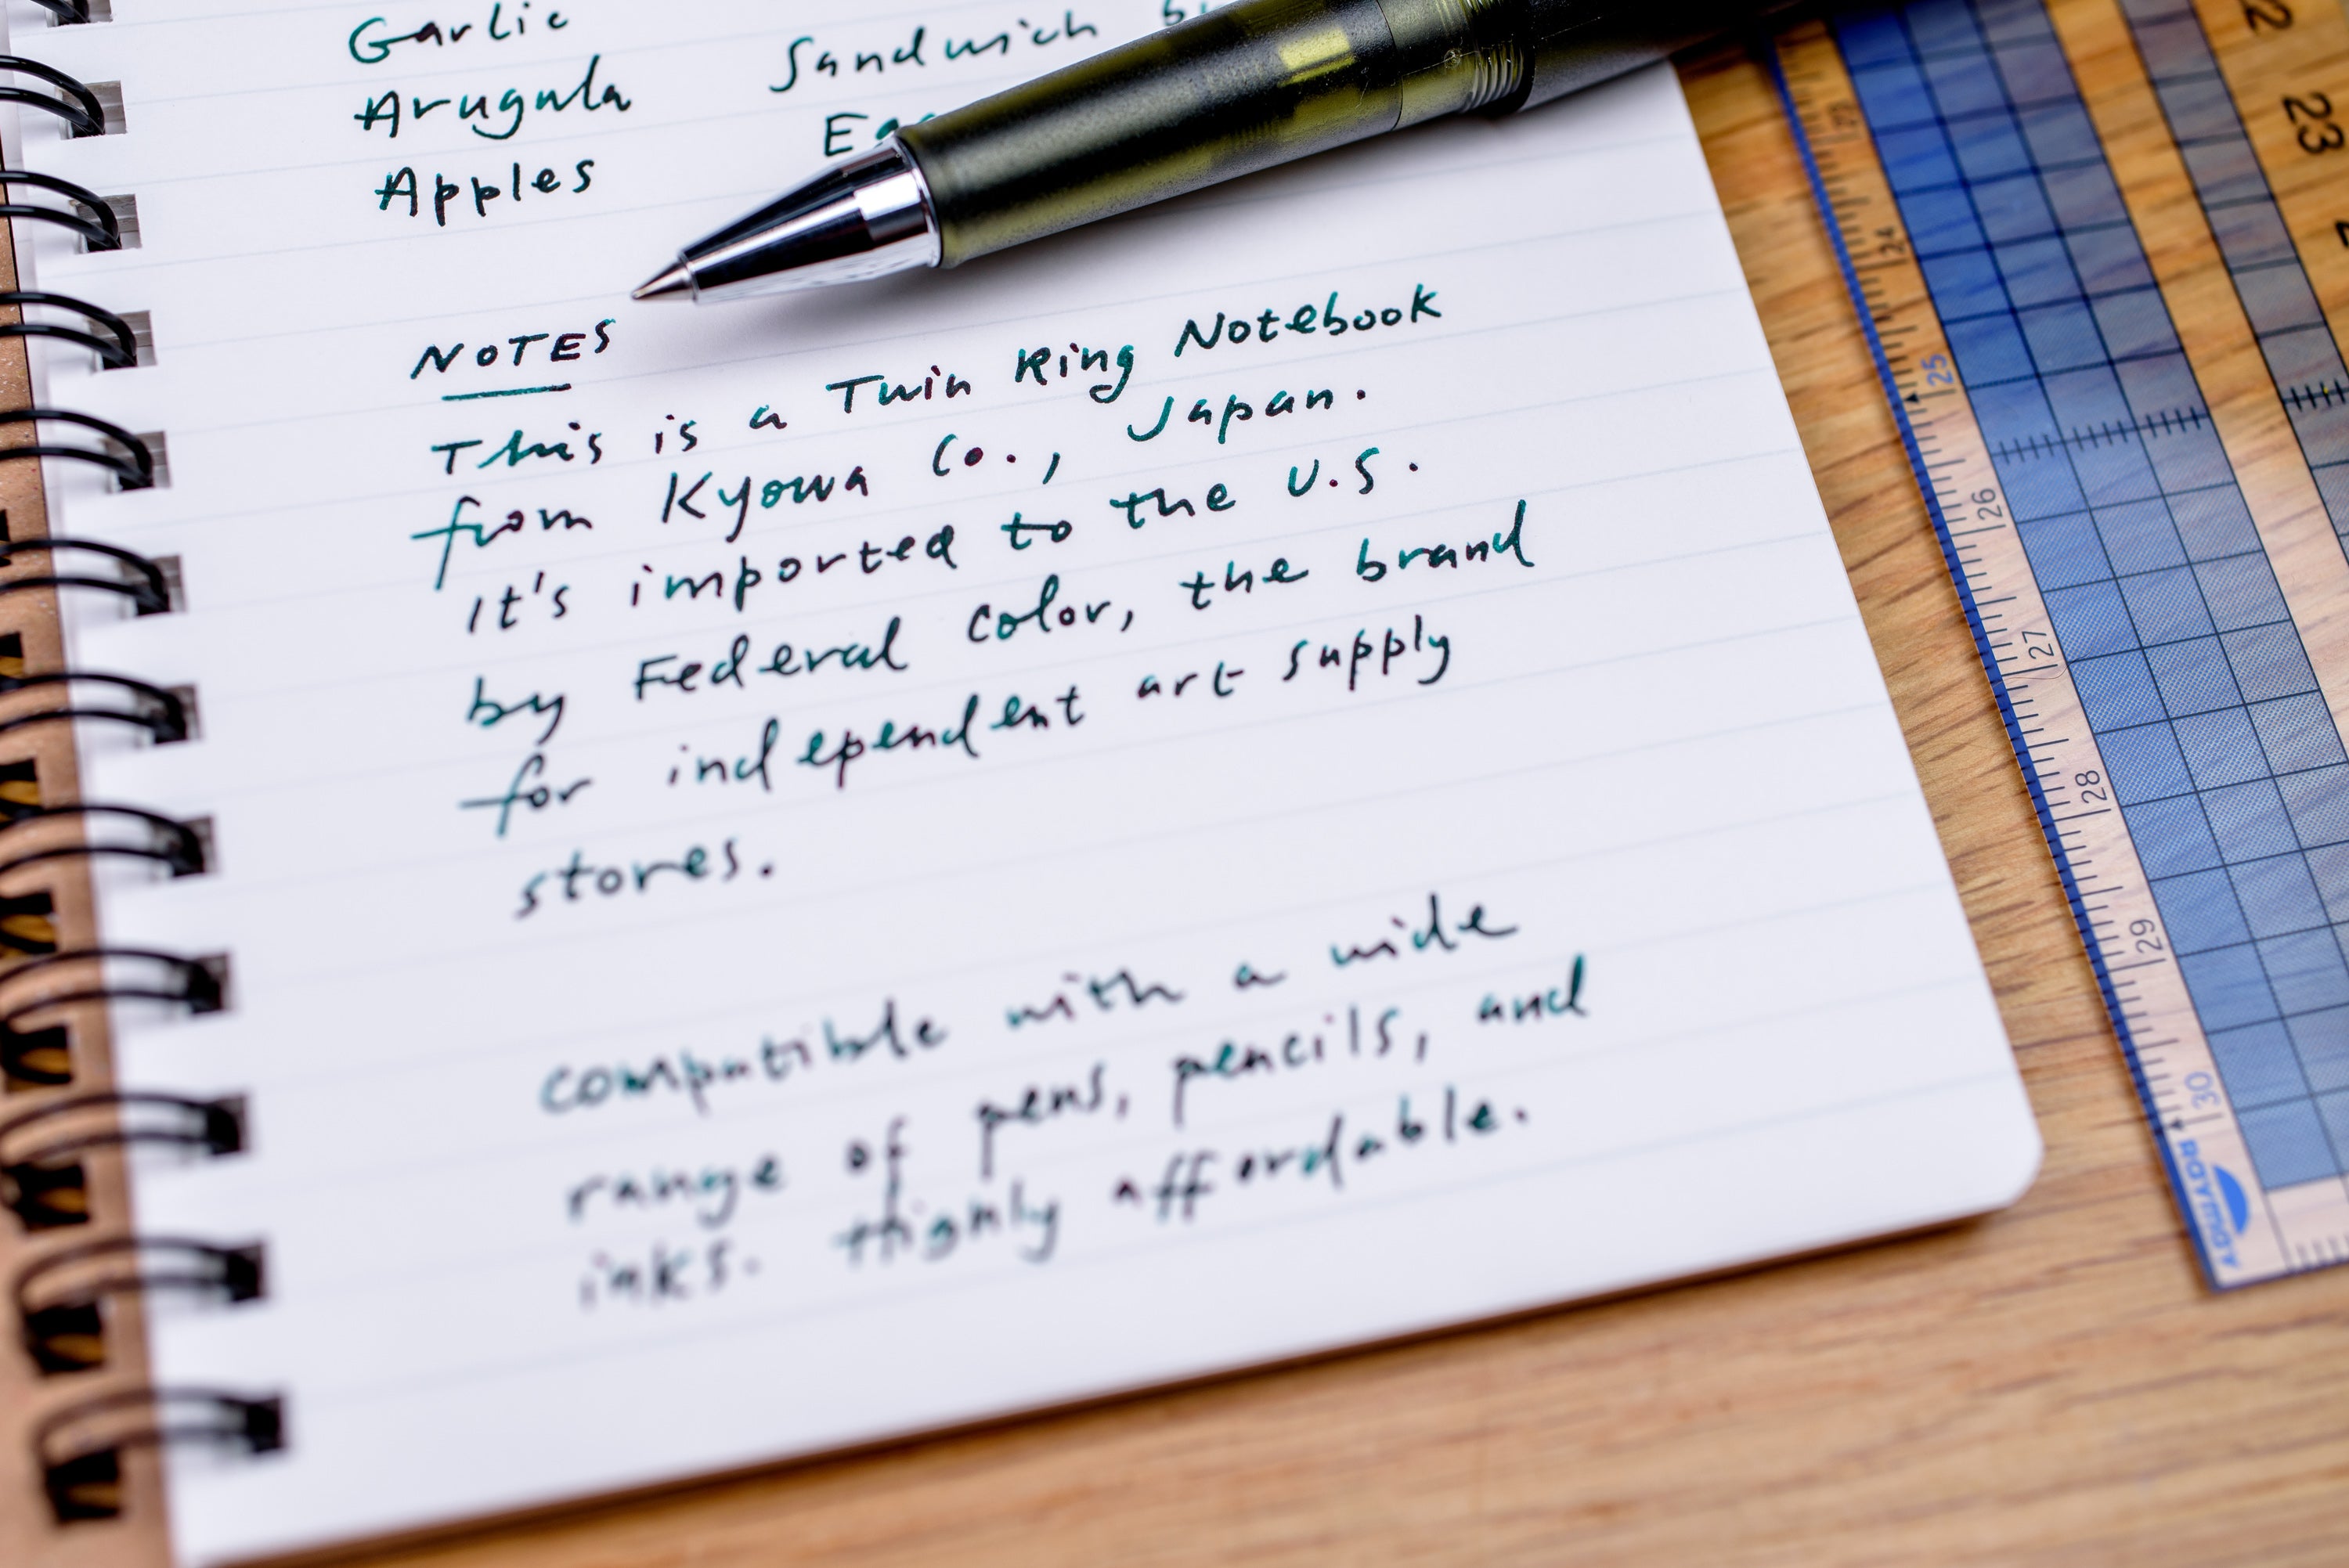 Garlic
Arugula Sandwich
Apples
NOTES
This is a Twin Ring Notebook
from Kyowa Co., Japan.
It's imported to the U.S.
by Federal Color, the brand
for independent art supply
stores.
compatible with a wide
range of pens, pencils, and
inks. Highly affordable.
22
23
24
25
26
27
28
29
30